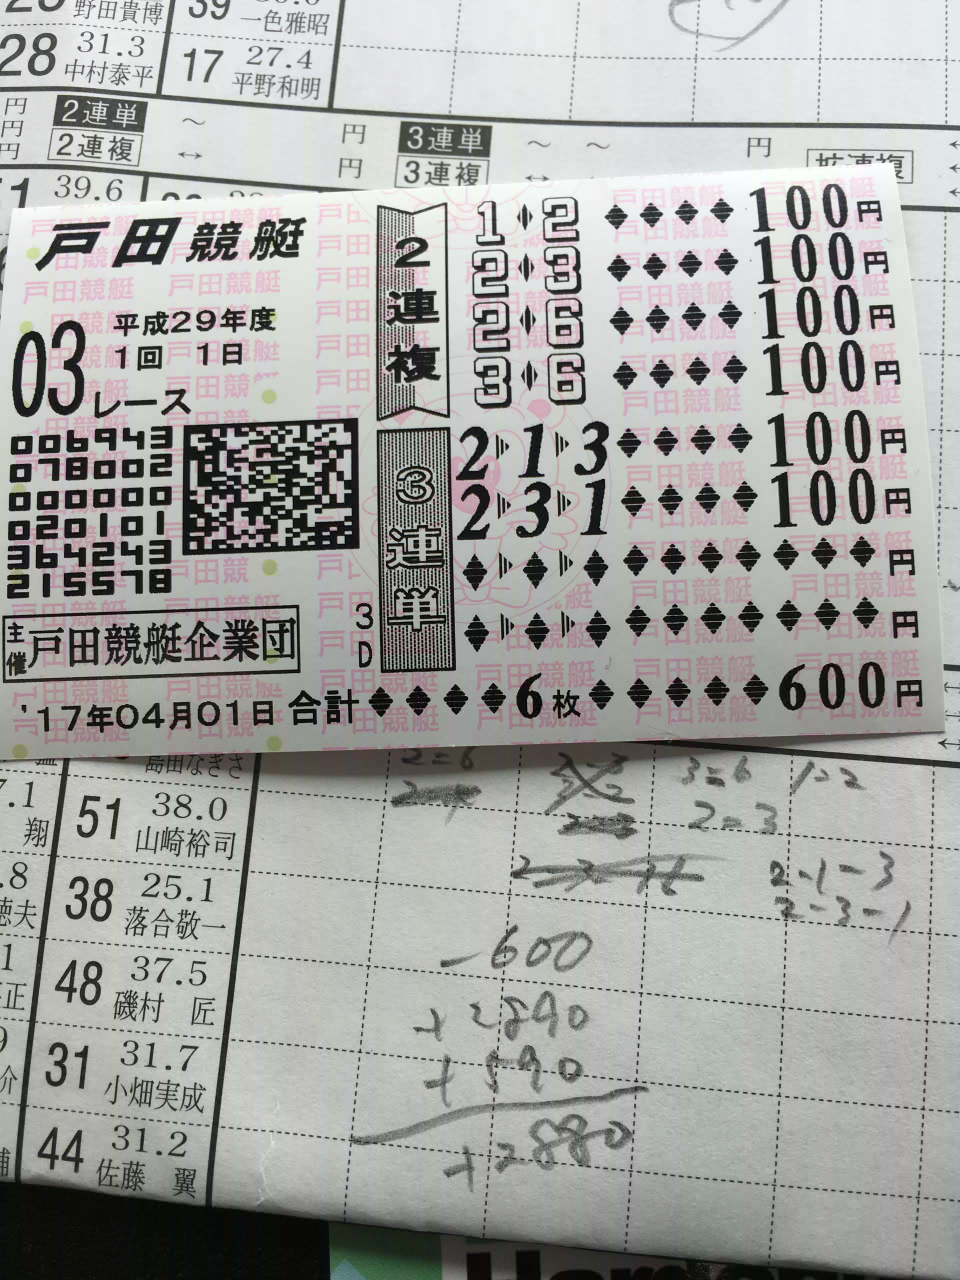 野田貴博
39
一色雅昭
28 31.3
中村泰平
17 27.4
平野和明
円
円
円
2連単
2連複
～
↔
円
円
3連単
3連複
～ ～
円
39.6
戸田競艇
03レース
平成29年度
1回 1日
006943
078002
000000
020101
364243
215578
主催 戸田競艇企業団
'17年04月01日
2連複
1 2 100円
2 3 100円
2 6 100円
3 6 100円
3連単
2 1 3 100円
2 3 1 100円
円
円
3D
合計 6枚 600円
島田なぎさ
51 38.0
山崎裕司
38 25.1
落合敬一
48 37.5
磯村 匠
31 31.7
小畑実成
44 31.2
佐藤 翼
翔
徳夫
2=6
3=6
1=2
2=3
2-1-3
2-3-1
-600
+2890
+590
+2880